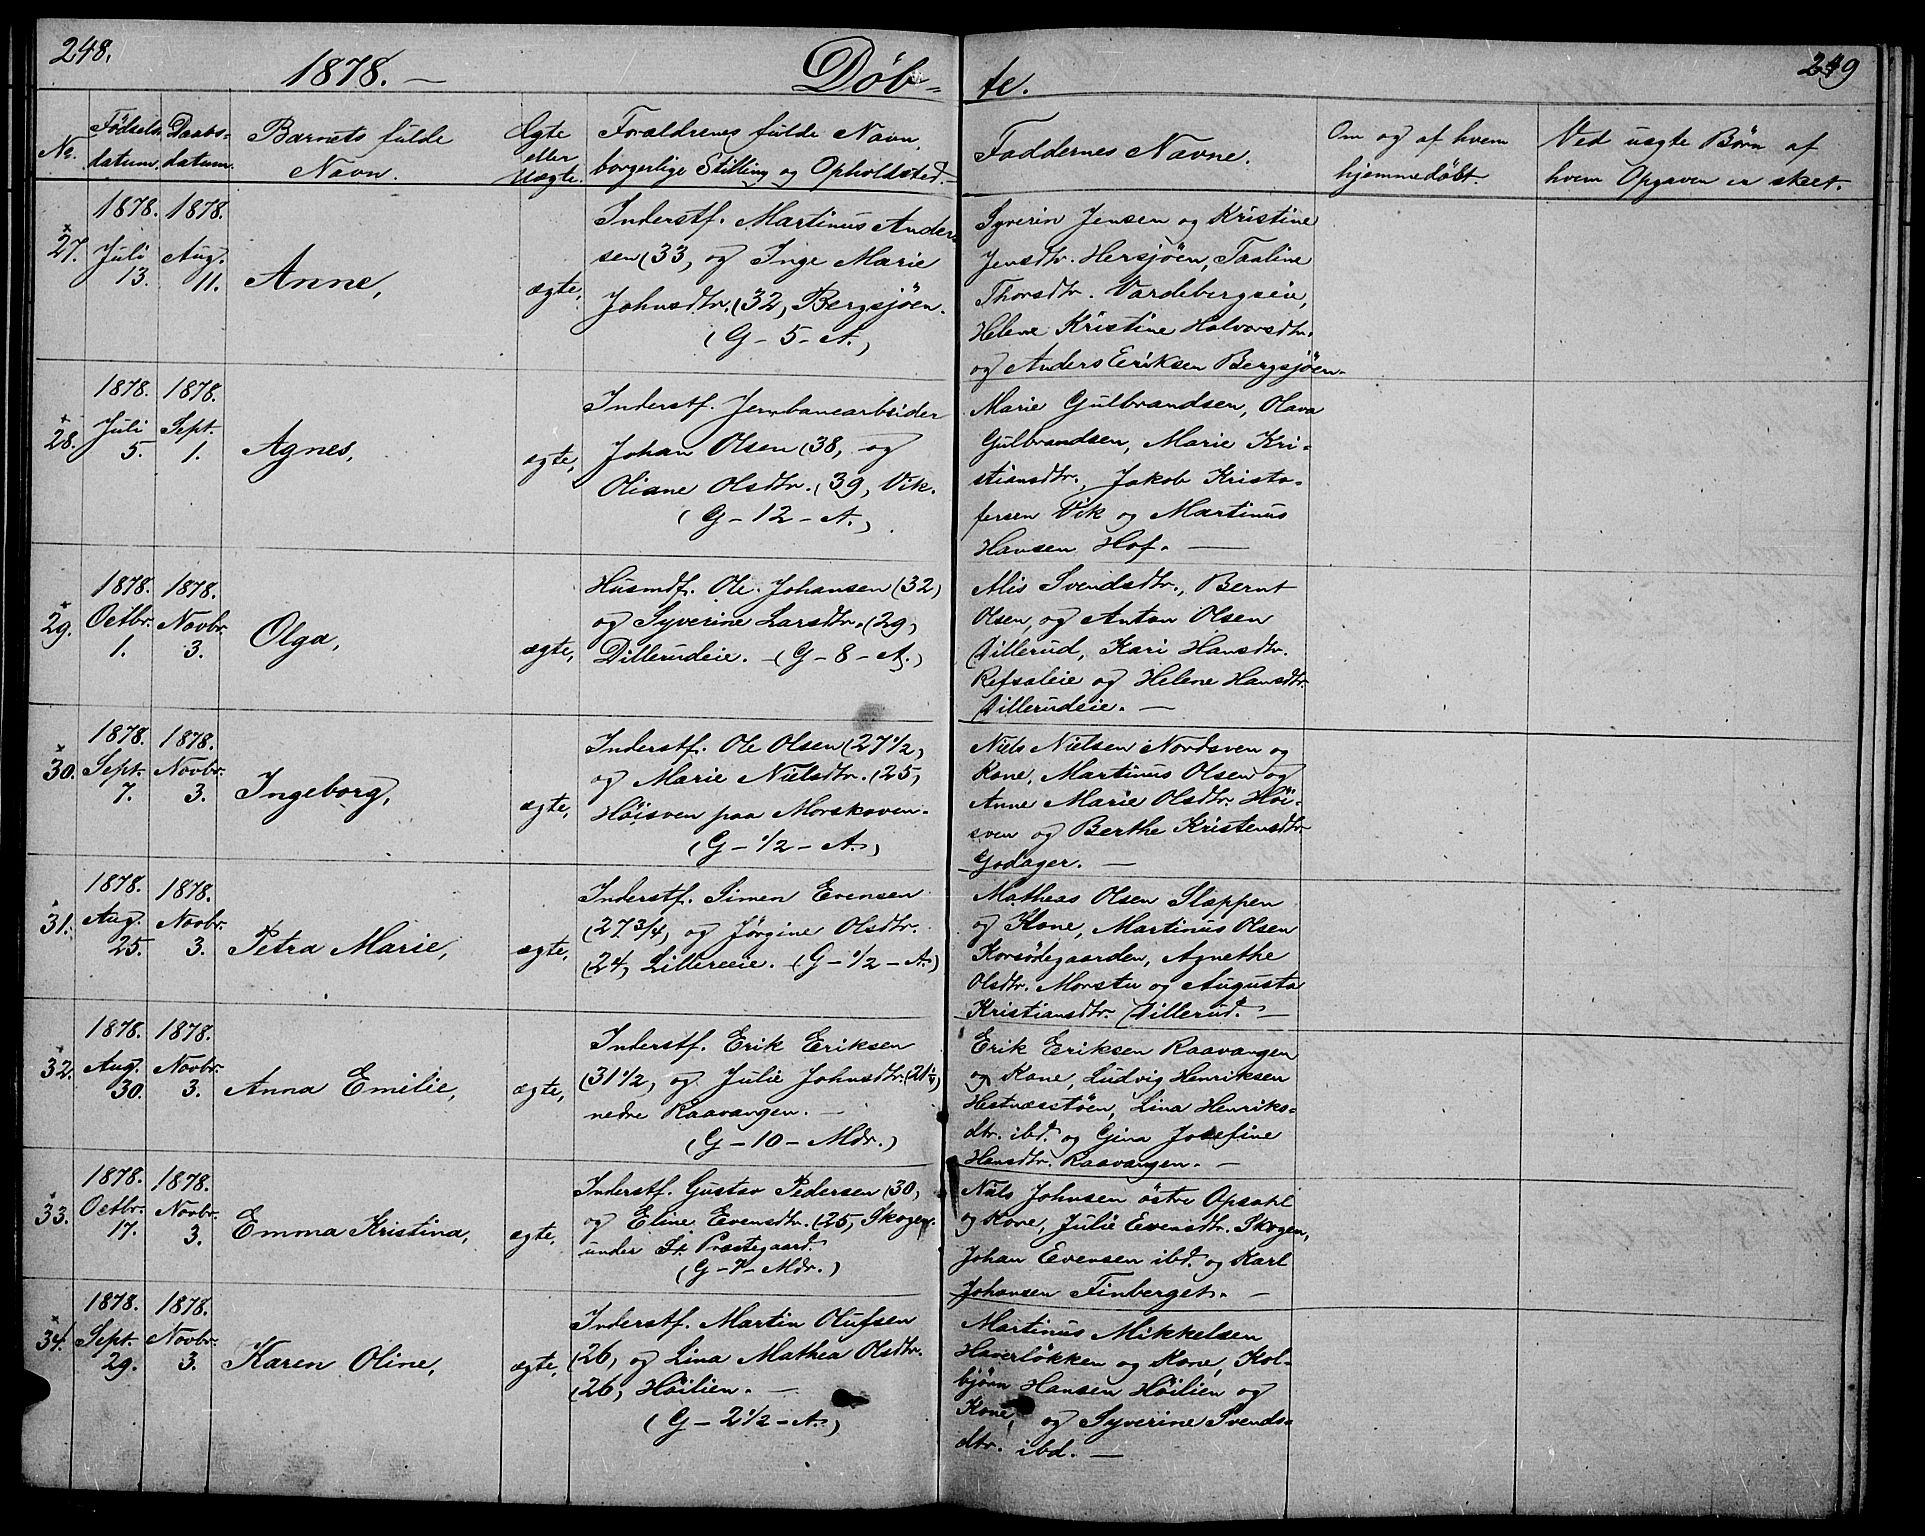 248.
1878. —
Døb-
te.
249
No.
Fødsels
datum.
Daabs-
datum.
Barnets fulde
Navn.
Ægte
eller
Uægte.
Forældrenes fulde Navn,
borgerlige Stilling og Opholdsted.
Faddernes Navne.
Om og af hvem
hjemmedöbt.
Ved uægte Børn af
hvem Opgaven er skeet.
27.
1878.
Juli
13.
1878.
Aug.
11.
Anne,
ægte,
Inderstf. Martinus Ander-
sen (33, og Inge Marie
Johnsdtr. (32, Bergsjöen.
(G - 5 - A.)
Syverin Jensen og Kristine
Jensdtr. Hersjöen, Taaline
Thorsdtr. Vardebergseie,
Helene Kristine Halvorsdtr.
og Anders Eriksen Bergsjöen.
28.
1878.
Juli
5.
1878.
Sept.
1.
Agnes,
ægte,
Inderstf. Jernbanearbeider
Johan Olsen (38, og
Oliane Olsdtr. (39, Vik.
(G - 12 - A.)
Marie Gulbrandsen, Olava
Gulbrandsen, Marie Kri-
stiansdtr., Jakob Kristo-
fersen Vik og Martinus
Hansen Hof. —
29.
1878.
Octbr.
1.
1878.
Novbr.
3.
Olga,
ægte,
Husmdf. Ole Johansen (32)
og Syverine Larsdtr. (29,
Dillerudeie. - (G - 8 - A.)
Alis Svendsdtr., Bernt
Olsen, og Anton Olsen
Dillerud, Kari Hansdtr.
Refsaleie og Helene Hansdtr.
Dillerudeie. —
30.
1878.
Sept.
7.
1878.
Novbr.
3.
Ingeborg,
ægte,
Inderstf. Ole Olsen (27 1/2,
og Marie Nielsdtr. (25,
Höisven paa Morskoven.
(G - 1/2 - A.)
Niels Nielsen Nordsven og
Kone, Martinus Olsen og
Anne Marie Olsdtr. Höi-
sven og Berthe Kristensdtr.
Godager. —
31.
1878.
Aug.
25.
1878.
Novbr.
3.
Petra Marie,
ægte,
Inderstf. Simen Evensen
(27 3/4, og Jørgine Olsdtr.
(24, Lillereeie. (G - 1/2 - A.)
Matheas Olsen Slæppen
og Kone, Martinus Olsen
Korsödegaarden, Agnethe
Olsdtr. Morstu og Augusta
Kristiansdtr. Dillerud. —
32.
1878.
Aug.
30.
1878.
Novbr.
3.
Anna Emilie,
ægte,
Inderstf. Erik Eriksen
(31 1/2, og Julie Johnsdtr. (21 1/4)
nedre Raavangen. —
(G - 10 - Mdr.)
Erik Eriksen Raavangen
og Kone, Ludvig Henriksen
Hestnæsstöen, Lina Henriks-
dtr. ibd. og Gina Josefine
Hansdtr. Raavangen. —
33.
1878.
Octbr.
17.
1878.
Novbr.
3.
Emma Kristina,
ægte,
Inderstf. Gustav Pedersen (30,
og Eline Evensdtr. (25, Skogen
under St. Præstegaard.
(G - 7 - Mdr.)
Niels Johnsen östre Opsahl
og Kone, Julie Evensdtr. Skogen,
Johan Evensen ibd. og Karl
Johansen Finberget. —
34.
1878.
Sept.
29.
1878.
Novbr.
3.
Karen Oline,
ægte,
Inderstf. Martin Olufsen
(26, og Lina Mathea Olsdtr.
(26, Höilien. —
(G - 2 1/2 - A.)
Martinus Mikkelsen
Haverløkken og Kone, Kol-
björn Hansen Höilien og
Kone, og Syverine Svends-
dtr. ibd. —